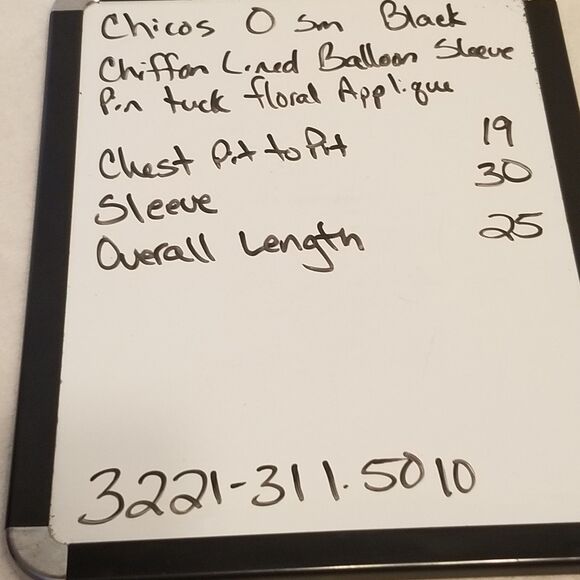 Chicos 0 sm Black
Chiffon Lined Balloon Sleeve
Pin tuck floral Applique
Chest Pit to Pit 19
Sleeve 30
Overall Length 25
3221-311.5010